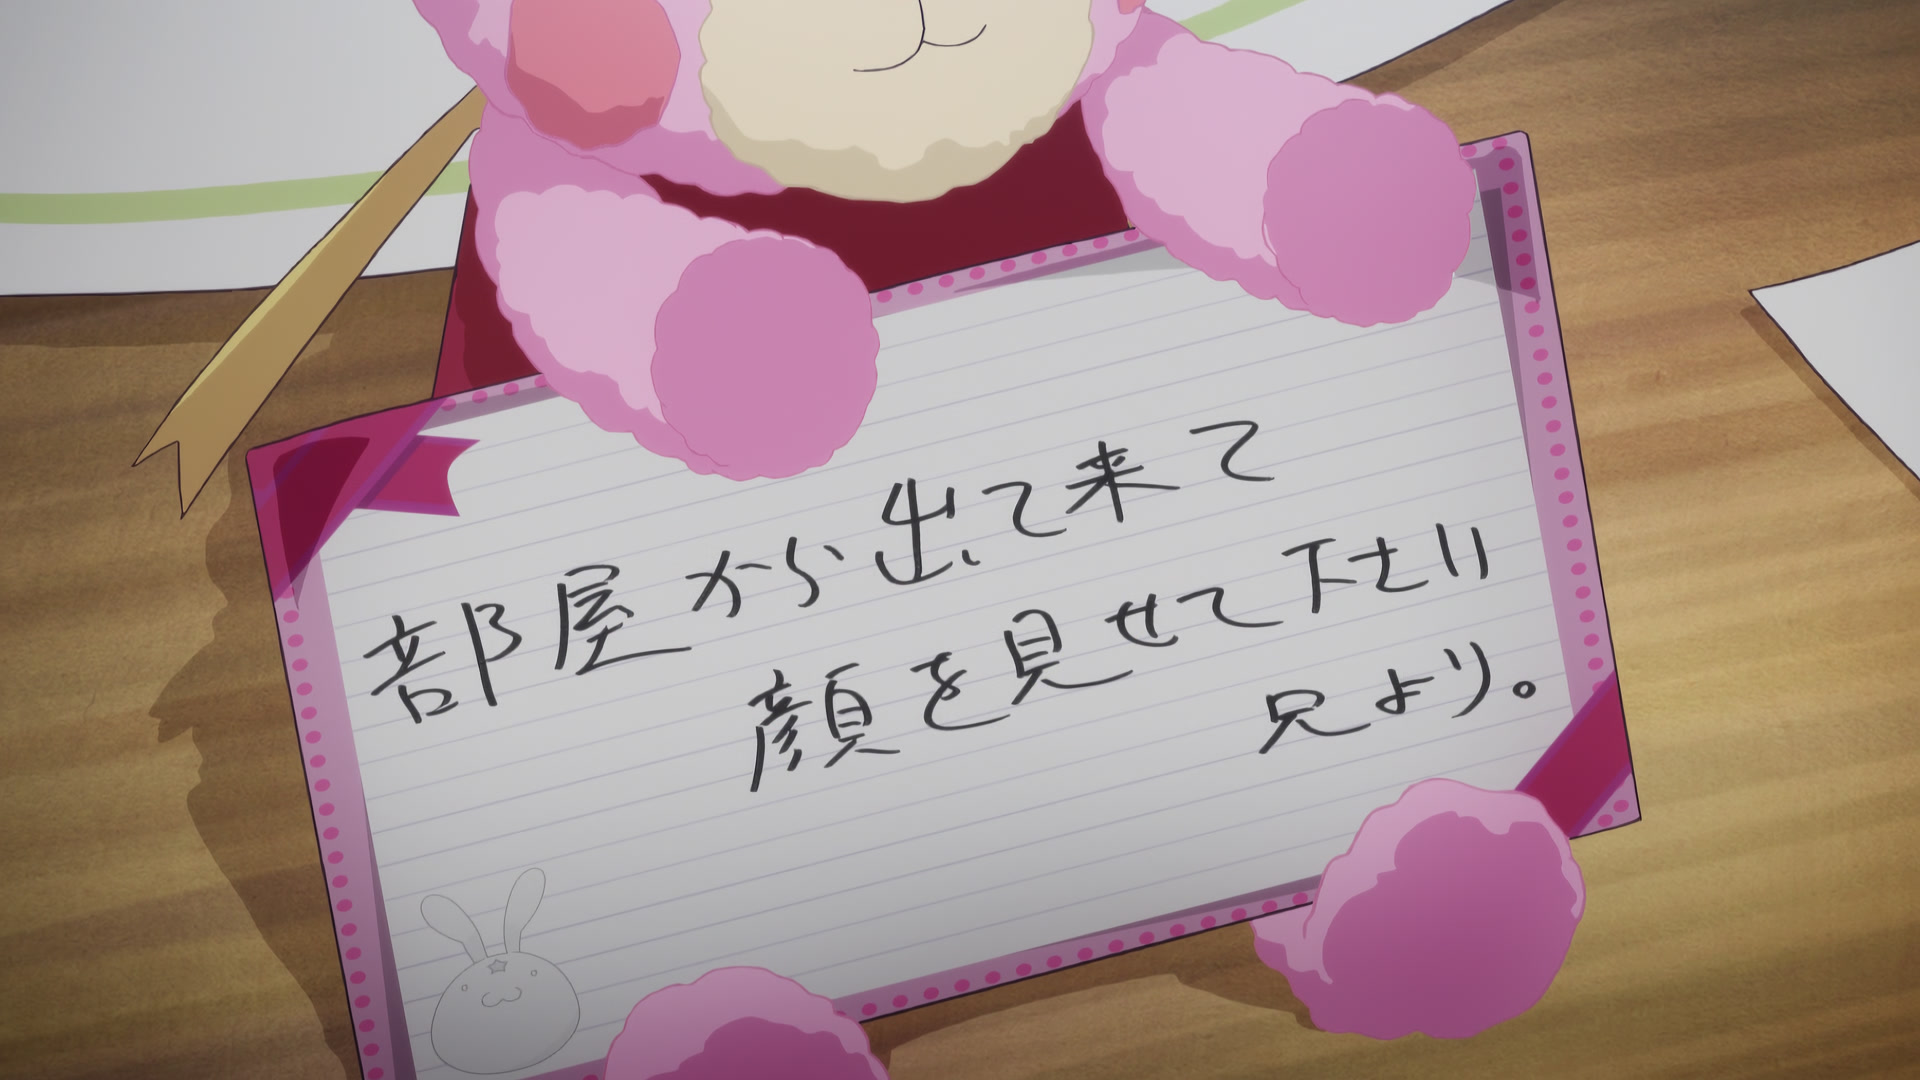 部屋から出て来て
顔を見せて下さい
兄より。